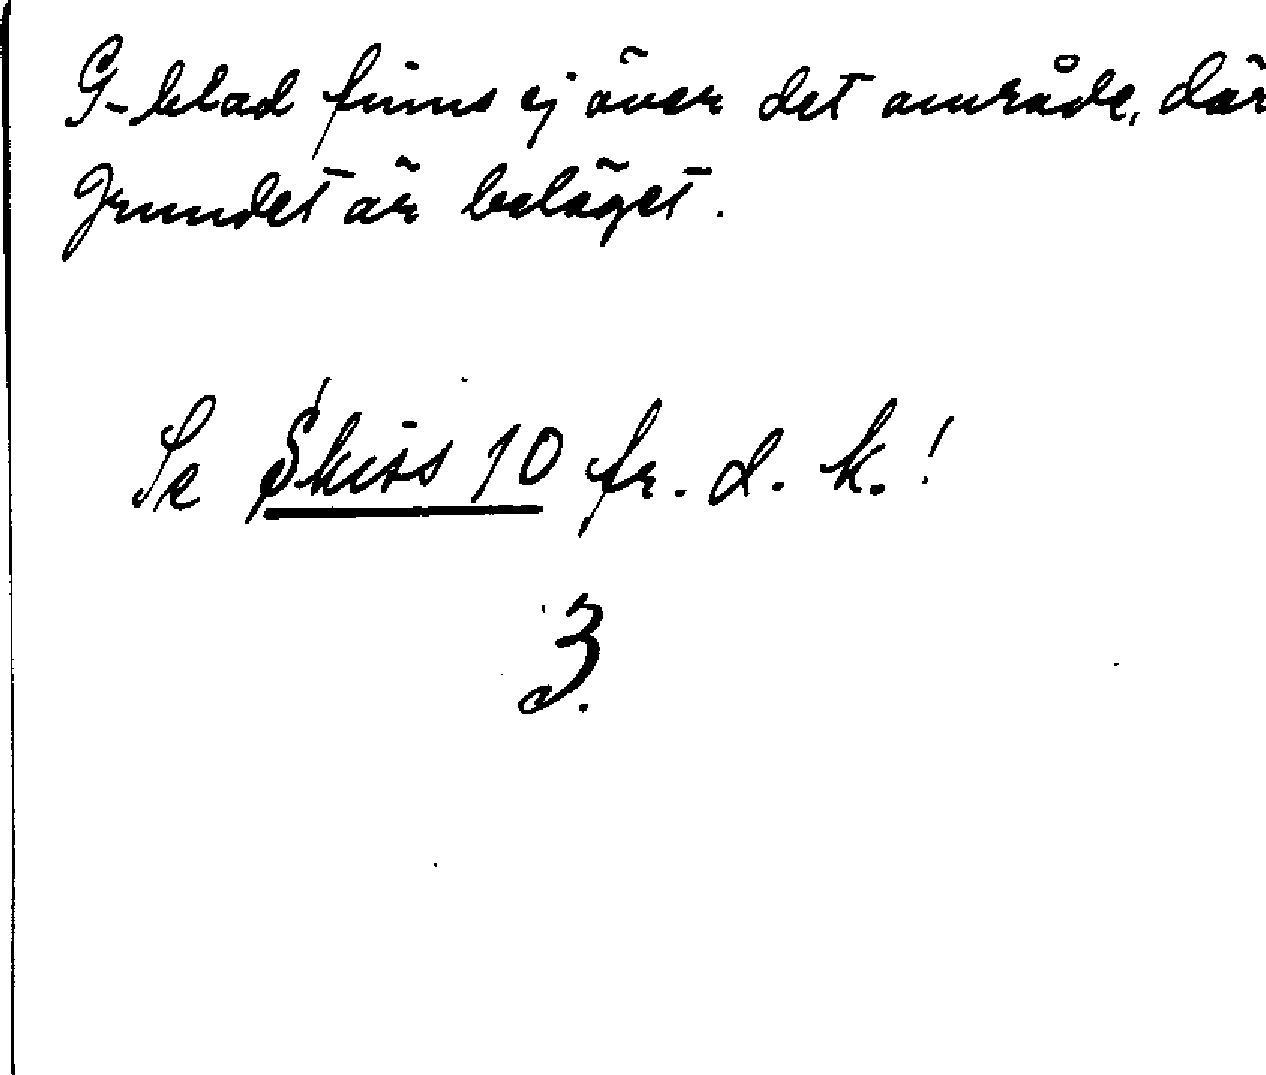 G-blad finns ej över det område, där
Grundet är beläget.
Se Skiss 10 fr. d. k.!
3.